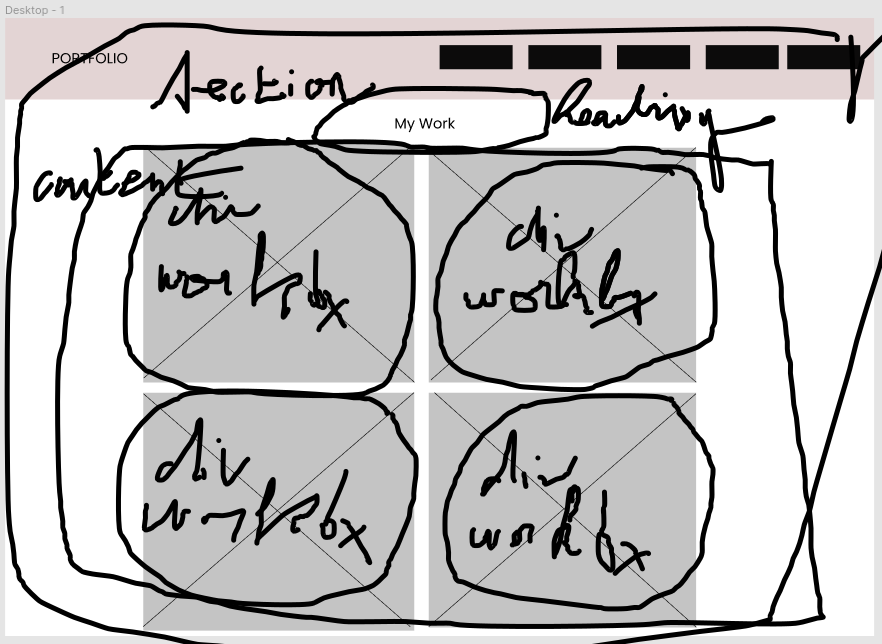 Desktop - 1
PORTFOLIO
Section
My Work
heading
content
div
workbox
div
workbx
div
workbox
div
workbx